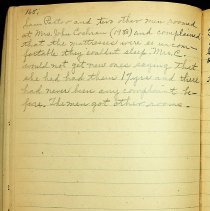 165.
and two other men roomed
at Mrs. John Cochran and complained
that the mattresses were so uncom-
fortable they couldn't sleep. Mrs. C.
would not get new ones saying that
she had had them 17 yrs and there
had never been any complaint be-
fore. The men got other rooms.